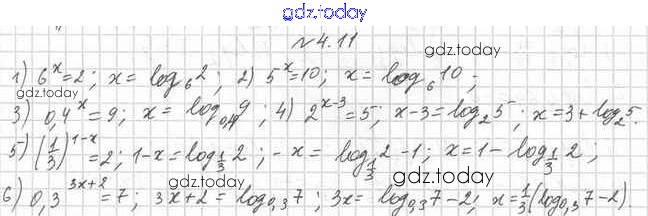 gdz.today
№4.11
1) 6^x=2; x=log_6 2; 2) 5^x=10; x=log_6 10;
3) 0,4^x=9; x=log_0,4 9; 4) 2^(x-3)=5; x-3=log_2 5; x=3+log_2 5.
5) (1/3)^(1-x)=2; 1-x=log_(1/3) 2; -x=log_(1/3) 2-1; x=1-log_(1/3) 2;
6) 0,3^(3x+2)=7; 3x+2=log_0,3 7; 3x=log_0,3 7-2; x=1/3(log_0,3 7-2).
gdz.today
gdz.today
gdz.today
gdz.today
gdz.today
gdz.today